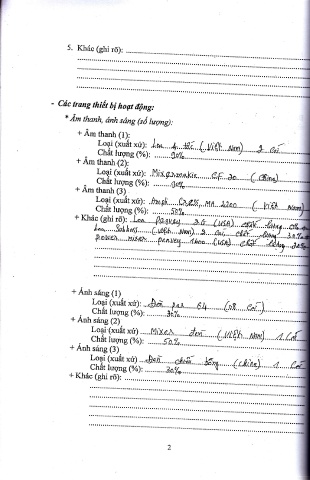 5. Khác (ghi rõ):
- Các trang thiết bị hoạt động:
* Âm thanh, ánh sáng (số lượng):
+ Âm thanh (1):
Loại (xuất xứ): Loa 4 tấc (Việt Nam) 2 cái
Chất lượng (%): 90%
+ Âm thanh (2):
Loại (xuất xứ): CF 20 (China)
Chất lượng (%): 90%
+ Âm thanh (3)
Loại (xuất xứ): MA 2200 (Việt Nam)
Chất lượng (%): 50%
+ Khác (ghi rõ): Loa peavey (USA) chất lượng
Loa (Việt Nam) 2 cái, chất lượng 30%
power mixer peavey (USA) chất lượng
+ Ánh sáng (1)
Loại (xuất xứ): Đèn par 64 (08 cái)
Chất lượng (%): 30%
+ Ánh sáng (2)
Loại (xuất xứ) Mixer đèn (Việt Nam) 1 cái
Chất lượng (%): 50%
+ Ánh sáng (3)
Loại (xuất xứ): Đèn (China) 1 cái
Chất lượng (%): 30%
+ Khác (ghi rõ):
2